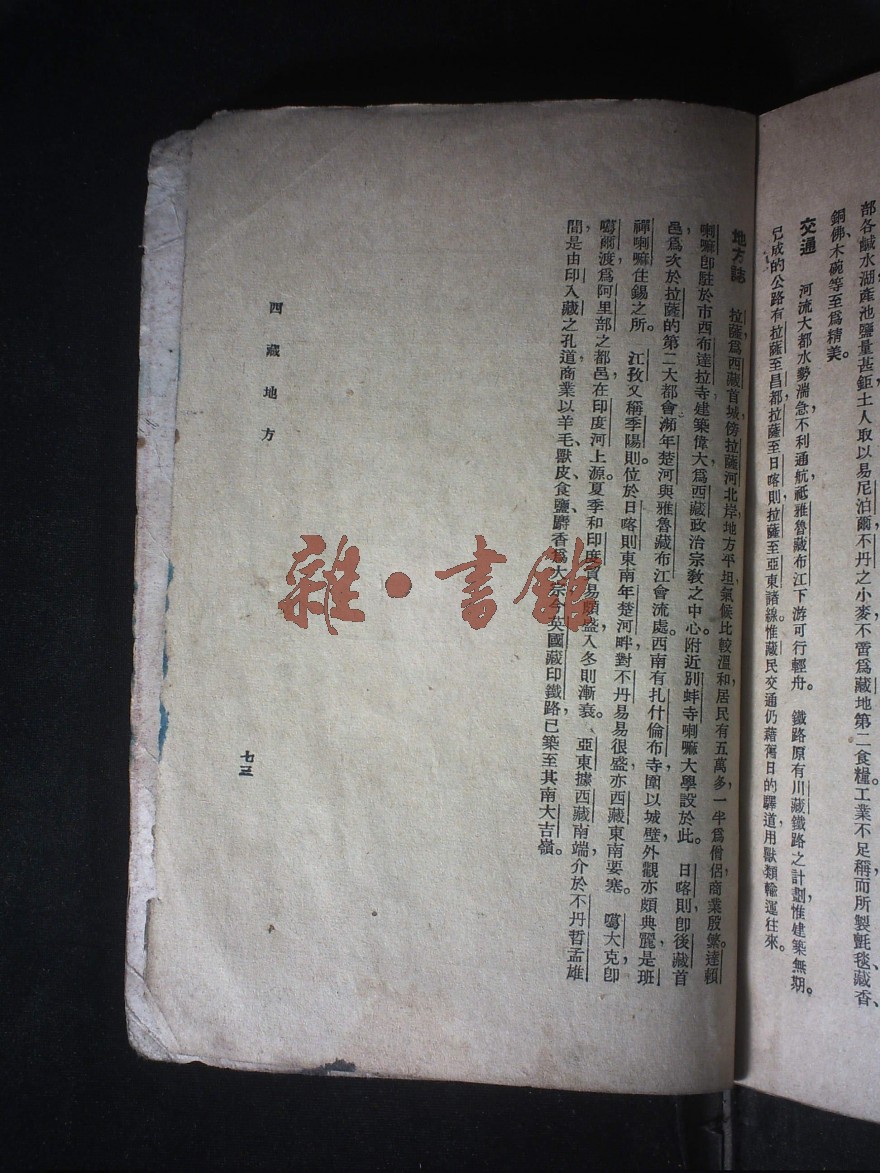 部各鹹水湖產池鹽量甚鉅,土人取以易尼泊爾不丹之小麥,不啻爲藏地第二食糧。工業不足稱,而所製氈毯、藏香、
銅佛、木碗等至爲精美。
交通 河流大都水勢湍急,不利通航,祗雅魯藏布江下游可行輕舟。鐵路原有川藏鐵路之計劃,惟建築無期。
已成的公路有拉薩至昌都,拉薩至日喀則,拉薩至亞東諸線。惟藏民交通仍藉舊日的驛道,用獸類輸運往來。
地方誌 拉薩,爲西藏首城,傍拉薩河北岸,地方平坦,氣候比較溫和,居民有五萬多,一半爲僧侶,商業殷繁。達頼
喇嘛卽駐於市西布達拉寺,建築偉大,爲西藏政治宗敎之中心。附近別蚌寺,喇嘛大學設於此。 日喀則,卽後藏首
邑,爲次於拉薩的第二大都會,瀕年楚河與雅魯藏布江會流處。西南有扎什倫布寺,圍以城壁,外觀亦頗典麗,是班
禪喇嘛住錫之所。 江孜,又稱季陽,則位於日喀則東南年楚河畔,對不丹易易很盛,亦西藏東南要塞。 噶大克,卽
噶爾渡,爲阿里部之都邑,在印度河上源。夏季和印度貿易頗盛,入冬則漸衰。 亞東,據西藏南端,介於不丹哲孟雄
間,是由印入藏之孔道,商業以羊毛、獸皮、食鹽、麝香爲大宗,今英國藏印鐵路,已築至其南大吉嶺。
西藏地方
七三
雜·書館